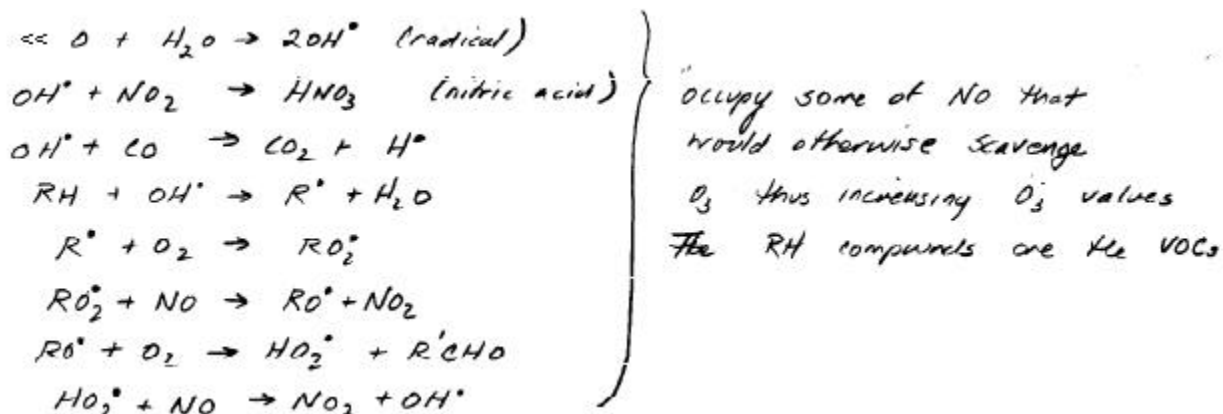 << O + H₂O → 2OH• (radical)
OH• + NO₂ → HNO₃ (nitric acid)
OH• + CO → CO₂ + H•
RH + OH• → R• + H₂O
R• + O₂ → RO₂•
RO₂• + NO → RO• + NO₂
RO• + O₂ → HO₂• + R'CHO
HO₂• + NO → NO₂ + OH•
occupy some of NO that
would otherwise scavenge
O₃ thus increasing O₃ values
The RH compounds are the VOCs